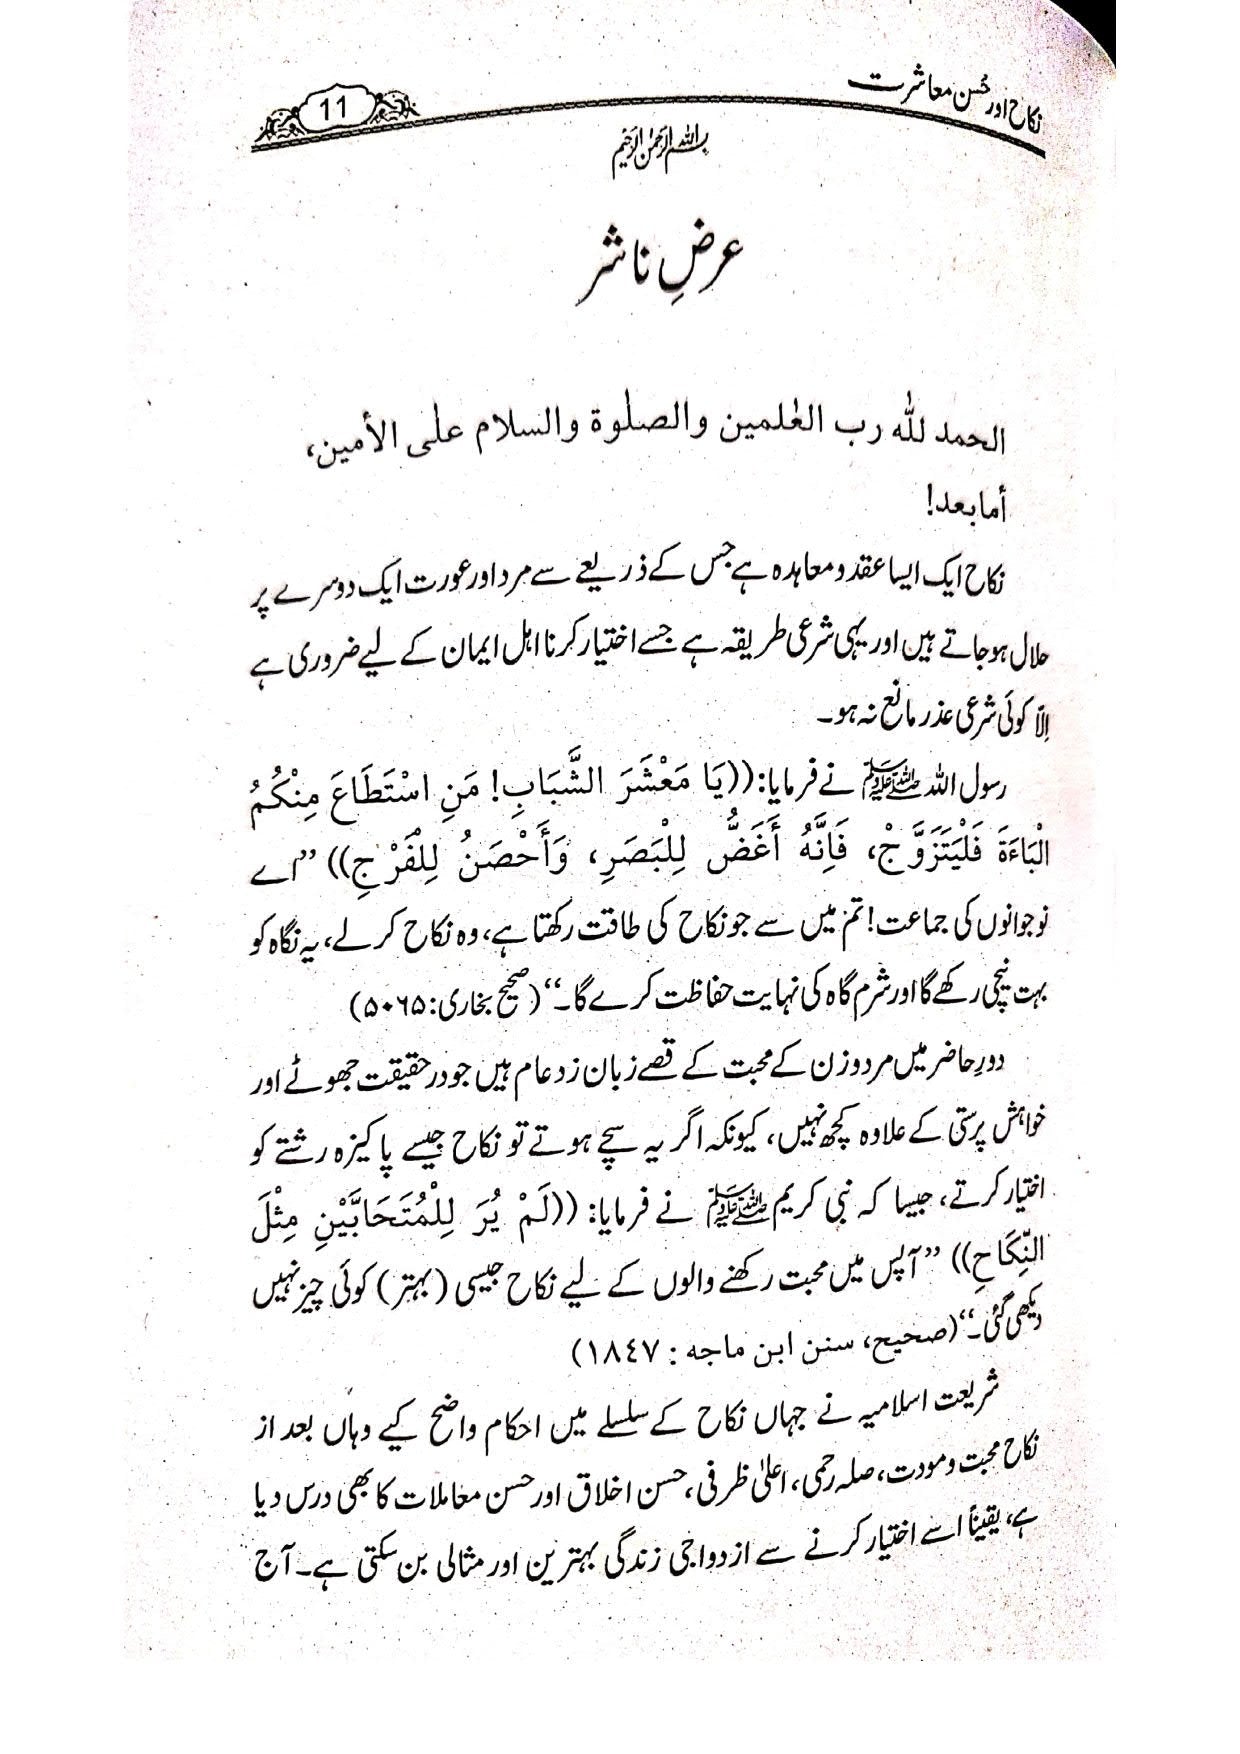 نکاح اور حُسن معاشرت
11
بسم اللہ الرحمٰن الرحیم
عرضِ ناشر
الحمد للّٰه رب العٰلمين والصلوة والسلام على الأمين،
أما بعد!
نکاح ایک ایسا عقد و معاہدہ ہے جس کے ذریعے سے مرد اور عورت ایک دوسرے پر
حلال ہو جاتے ہیں اور یہی شرعی طریقہ ہے جسے اختیار کرنا اہل ایمان کے لیے ضروری ہے
اِلّا کوئی شرعی عذر مانع نہ ہو۔
رسول اللہ ﷺ نے فرمایا: ((يَا مَعْشَرَ الشَّبَابِ! مَنِ اسْتَطَاعَ مِنْكُمُ
الْبَاءَةَ فَلْيَتَزَوَّجْ، فَإِنَّهُ أَغَضُّ لِلْبَصَرِ، وَأَحْصَنُ لِلْفَرْجِ)) ”اے
نوجوانوں کی جماعت! تم میں سے جو نکاح کی طاقت رکھتا ہے، وہ نکاح کر لے، یہ نگاہ کو
بہت نیچی رکھے گا اور شرم گاہ کی نہایت حفاظت کرے گا۔“ (صحیح بخاری: ۵۰۶۵)
دورِ حاضر میں مرد و زن کے محبت کے قصے زبان زد عام ہیں جو در حقیقت جھوٹے اور
خواہش پرستی کے علاوہ کچھ نہیں، کیونکہ اگر یہ سچے ہوتے تو نکاح جیسے پاکیزہ رشتے کو
اختیار کرتے، جیسا کہ نبی کریم ﷺ نے فرمایا: ((لَمْ يُرَ لِلْمُتَحَابَّيْنِ مِثْلَ
النِّكَاحِ)) ”آپس میں محبت رکھنے والوں کے لیے نکاح جیسی (بہتر) کوئی چیز نہیں
دیکھی گئی۔“ (صحيح، سنن ابن ماجه : ١٨٤٧)
شریعت اسلامیہ نے جہاں نکاح کے سلسلے میں احکام واضح کیے وہاں بعد از
نکاح محبت و مودت، صلہ رحمی، اعلیٰ ظرفی، حسن اخلاق اور حسن معاملات کا بھی درس دیا
ہے، یقیناً اسے اختیار کرنے سے ازدواجی زندگی بہترین اور مثالی بن سکتی ہے۔ آج